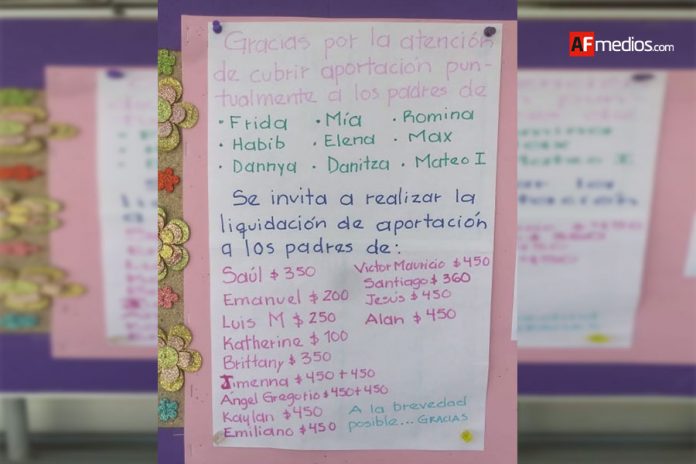 AFmedios.com
Gracias por la atención
de cubrir aportación pun-
tualmente a los padres de
· Frida · Mía · Romina
· Habib · Elena · Max
· Dannya · Danitza · Mateo I
Se invita a realizar la
liquidación de aportación
a los padres de:
Saúl $ 350
Emanuel $ 200
Luis M $ 250
Katherine $ 100
Brittany $ 350
Jimenna $ 450 + 450
Angel Gregorio $ 450 + 450
Kaylan $ 450
Emiliano $ 450
Victor Mauricio $ 450
Santiago $ 360
Jesús $ 450
Alan $ 450
A la brevedad
posible... GRACIAS